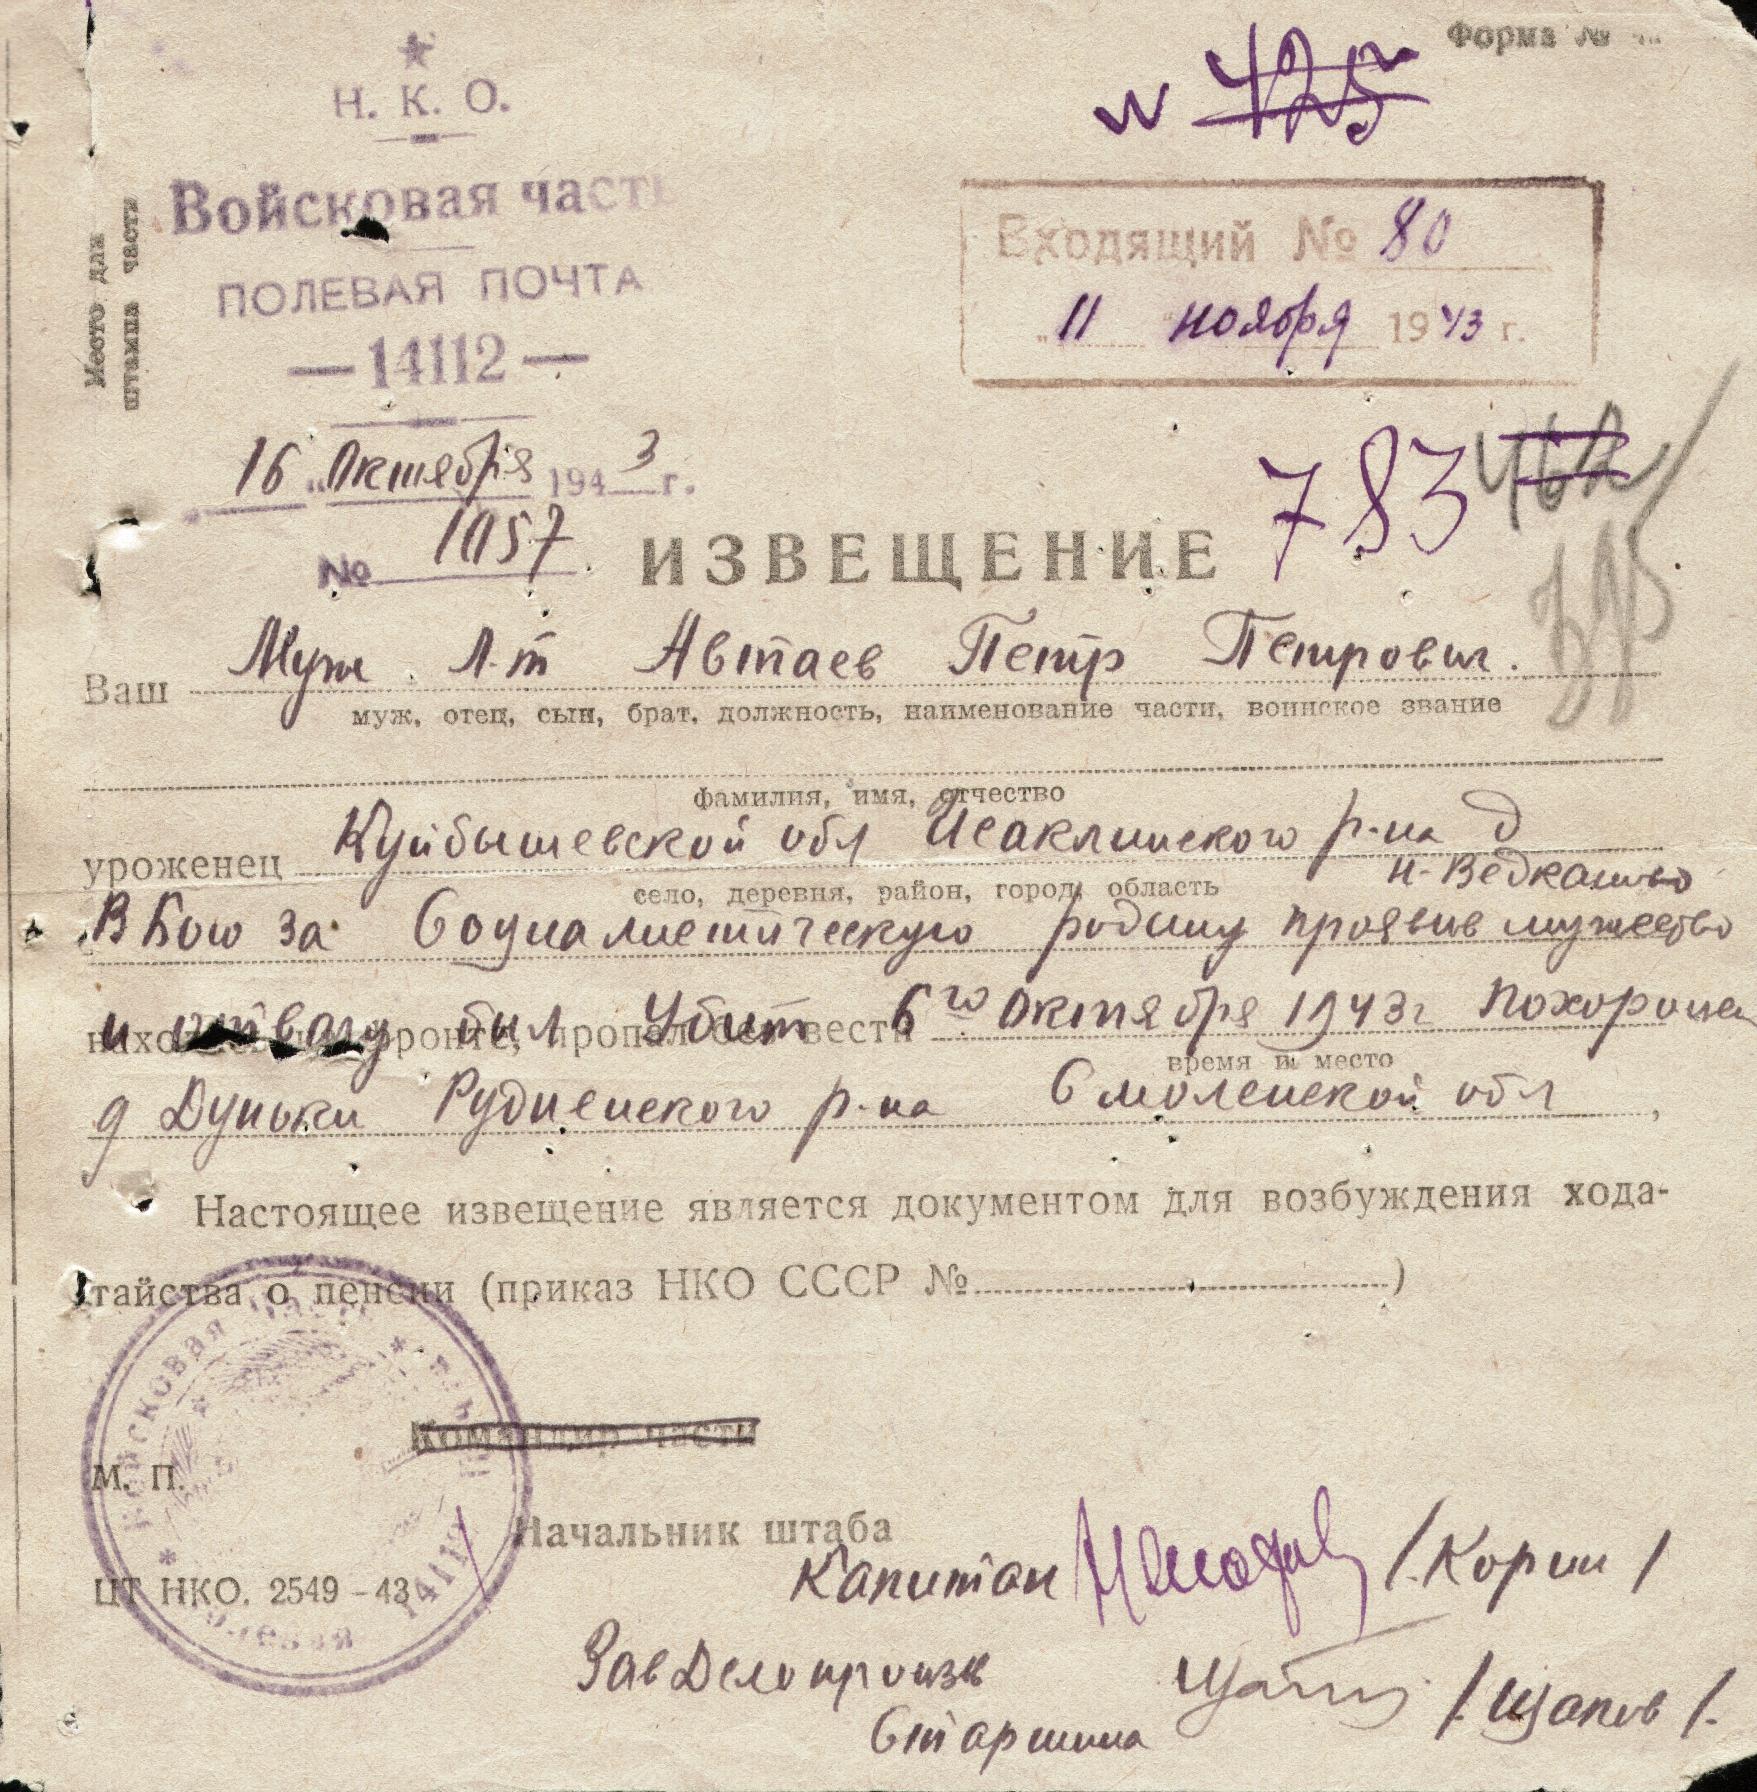 Форма №
№ 425
Н. К. О.
Войсковая часть
ПОЛЕВАЯ ПОЧТА
— 14112 —
Место для
штампа части
Входящий № 80
„ 11 " ноября 1943 г.
16 „ Октября 1943 г.
№ 1057
783
462
ИЗВЕЩЕНИЕ
Ваш Муж Л-т Автаев Петр Петрович.
муж, отец, сын, брат, должность, наименование части, воинское звание
фамилия, имя, отчество
уроженец Куйбышевской обл Исаклинского р-на д
н-Ведкашью
село, деревня, район, город, область
В Бою за Социалистическую родину проявив мужество
и отвагу был Убит 6го Октября 1943г Похоронен
находясь на фронте, пропал без вести
время и место
д Дуньки Руднен­ского р-на Смоленской обл ,
Настоящее извещение является документом для возбуждения хода-
тайства о пенсии (приказ НКО СССР № )
Командир части
М. П.
Начальник штаба
Капитан /.Корин /
ЦТ НКО. 2549 - 43
ЗавДелопроизв
Старшина /.Щапов /.
Войсковая часть * * Полевая 14112 *